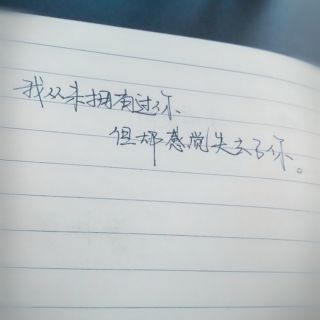 我从未拥有过你、
但却感觉失去了你。